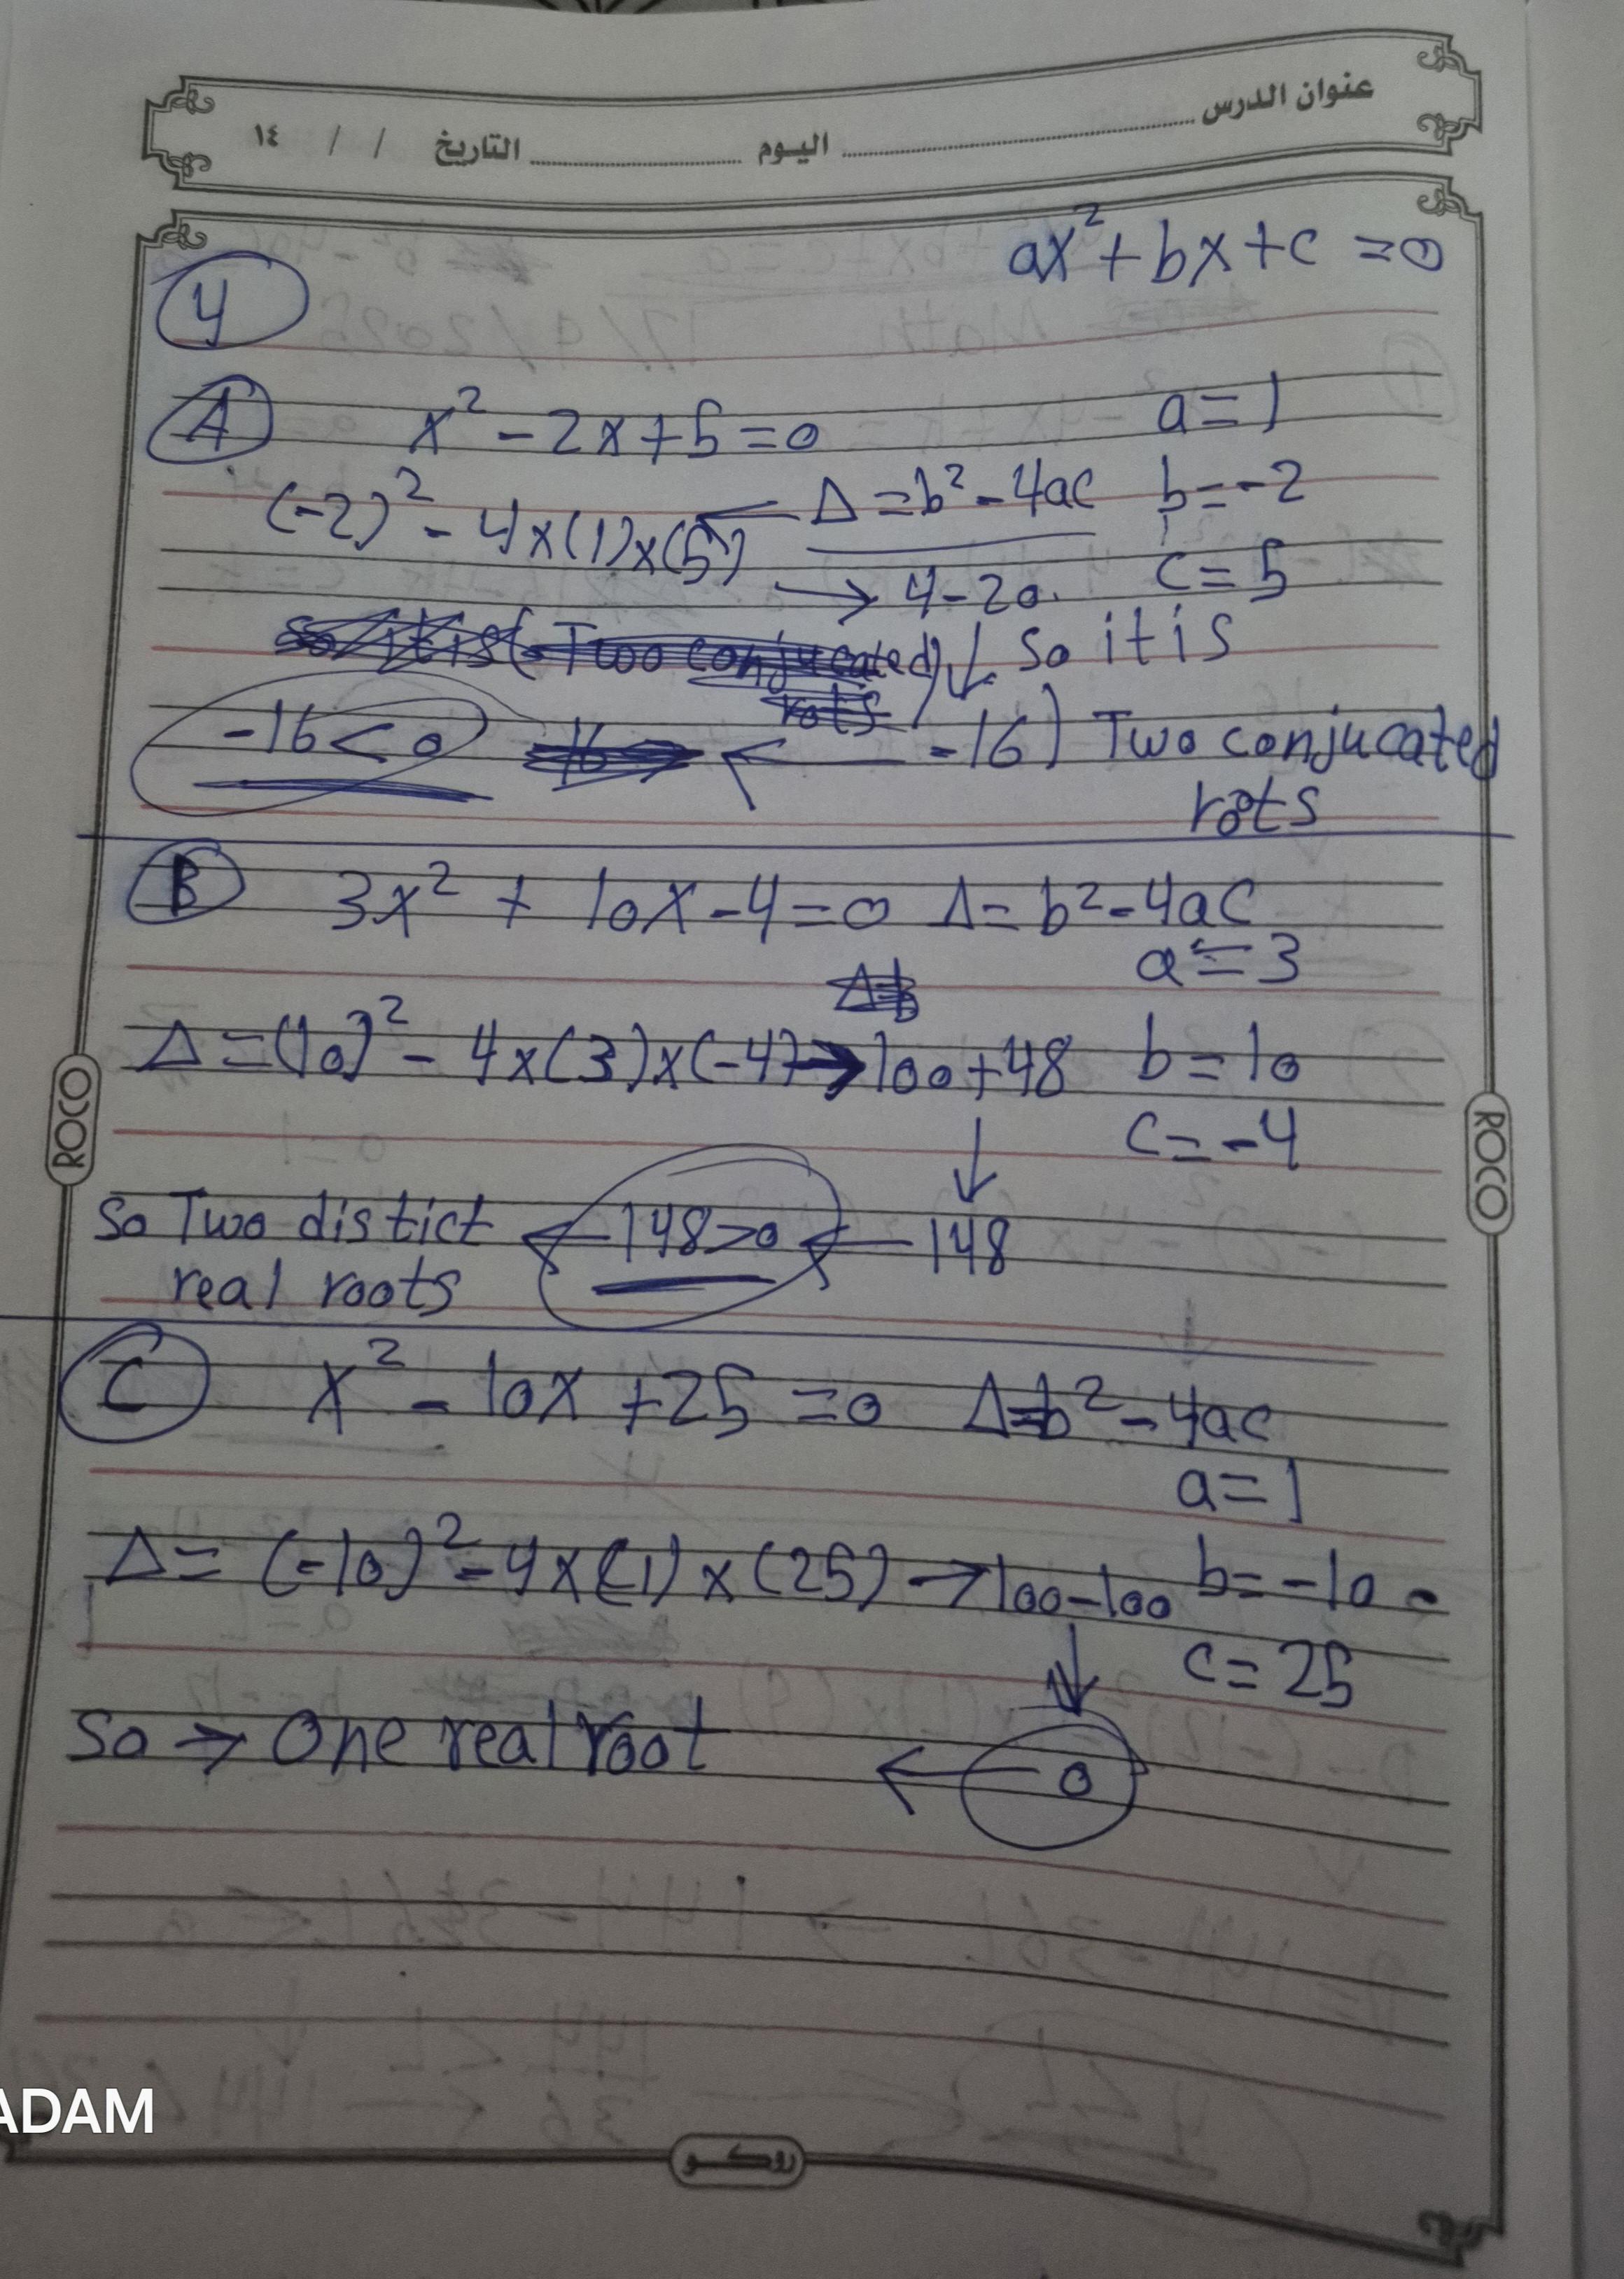 عنوان الدرس اليوم التاريخ / / ١٤
ax² + bx + c = 0
4
A x² - 2x + 5 = 0 a = 1
(-2)² - 4 × (1) × (5) ← Δ = b² - 4ac b = -2
→ 4 - 20. c = 5
so it is (Two conjucated) ↓ So it is
rots
-16 < 0 16 ← -16) Two conjucated
rots
B 3x² + 10x - 4 = 0 Δ = b² - 4ac
a = 3
Δ = b
Δ = (10)² - 4 × (3) × (-4) → 100 + 48 b = 10
↓ c = -4
So Two distict ← 148 > 0 ← 148
real roots
C x² - 10x + 25 = 0 Δ = b² - 4ac
a = 1
Δ = (-10)² - 4 × (1) × (25) → 100 - 100 b = -10
↓ c = 25
So → One real root ← 0
ROCO
ROCO
ADAM
روكو